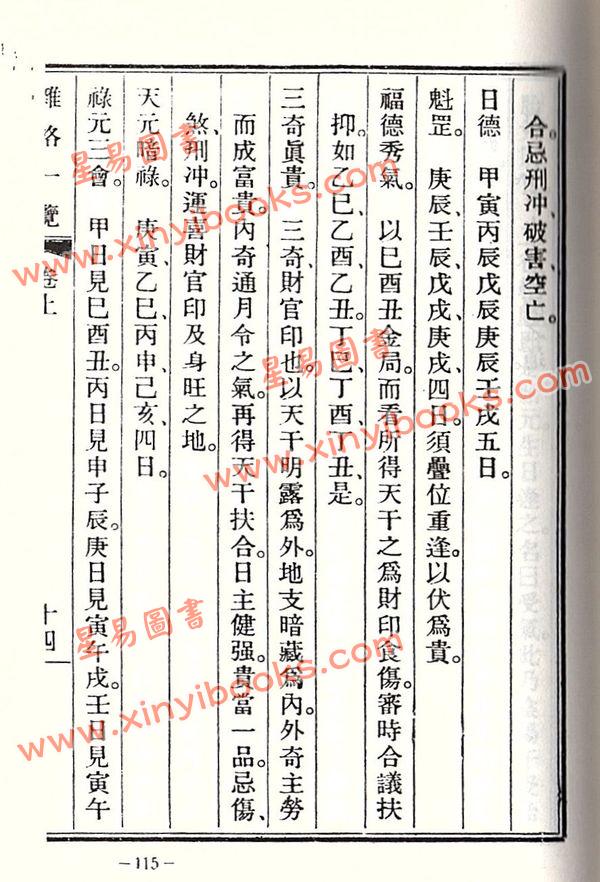 合忌刑冲、破害空亡。
日德　甲寅丙辰戊辰庚辰壬戌五日。
魁罡　庚辰、壬辰、戊戌、庚戌、四日須疊位重逢。以伏爲貴。
福德秀氣　以巳酉丑金局。而看所得天干之爲財印食傷。審時合議扶
抑。如乙巳乙酉乙丑。丁巳丁酉丁丑是。
三奇眞貴　三奇財官印也。以天干明露爲外。地支暗藏爲內。外奇主勞
而成富貴。內奇通月令之氣。再得天干扶合。日主健强。貴當一品。忌傷、
煞、刑冲、運喜財官印及身旺之地。
天元暗祿　庚寅、乙巳、丙申、己亥、四日。
祿元三會　甲日見巳酉丑。丙日見申子辰。庚日見寅午戌。壬日見寅午
雜格一覽　卷上　十四
－115－
星易圖書
www.xinyibooks.com
星易圖書
www.xinyibooks.com
星易圖書
www.xinyibooks.com